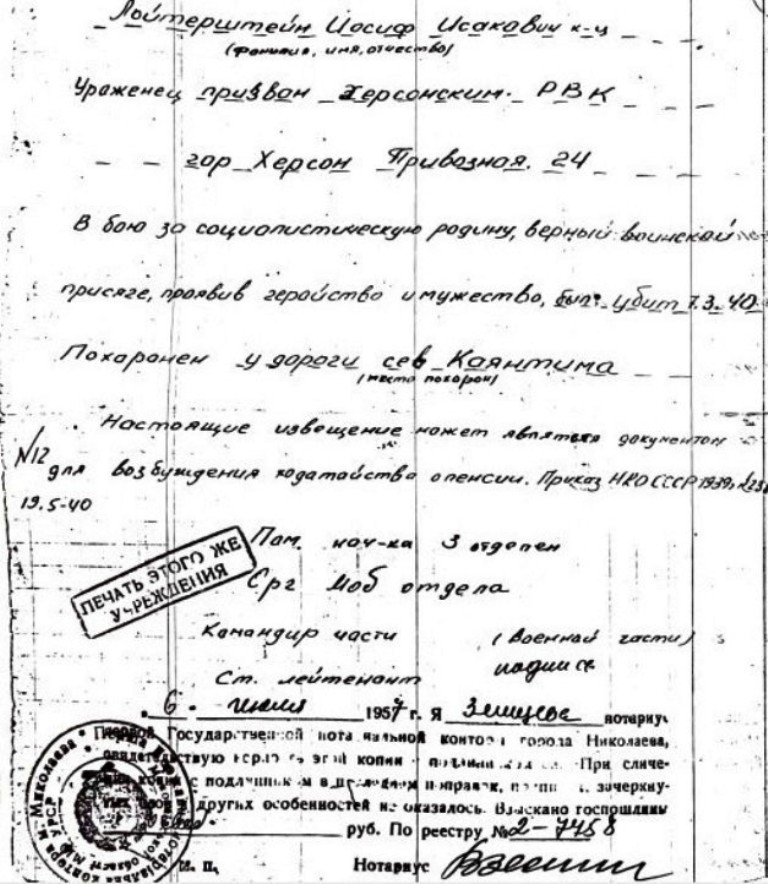 Лойтерштейн Иосиф Исакович к-ц
(фамилия, имя, отчество)
Ураженец призван Херсонским. РВК
гор Херсон Привозная. 24
В бою за социалистическую родину, верный воинской
присяге, проявив геройство и мужество, был убит 7.3.40.
Похаронен у дороги сев Каянтима
(место похорон)
Настоящие извещение может являтся документом
№12 для возбуждения ходатайства о пенсии. Приказ НКО СССР 1939г. №
19.5-40
Пом. нач-ка 3 отделен
ПЕЧАТЬ ЭТОГО ЖЕ
УЧРЕЖДЕНИЯ
Срг Моб отдела
Камандир части (военной части)
подпись
Ст. лейтенант
6. июля 1957 г. Я нотариус
Первой Государственной нотариальной конторы города Николаева,
свидетельствую верность этой копии с подлинником. При сличе-
нии копии с подлинником в последнем поправок, зачеркну-
других особенностей не оказалось. Взыскано госпошлины
руб. По реестру № 2-7458
М. П. Нотариус